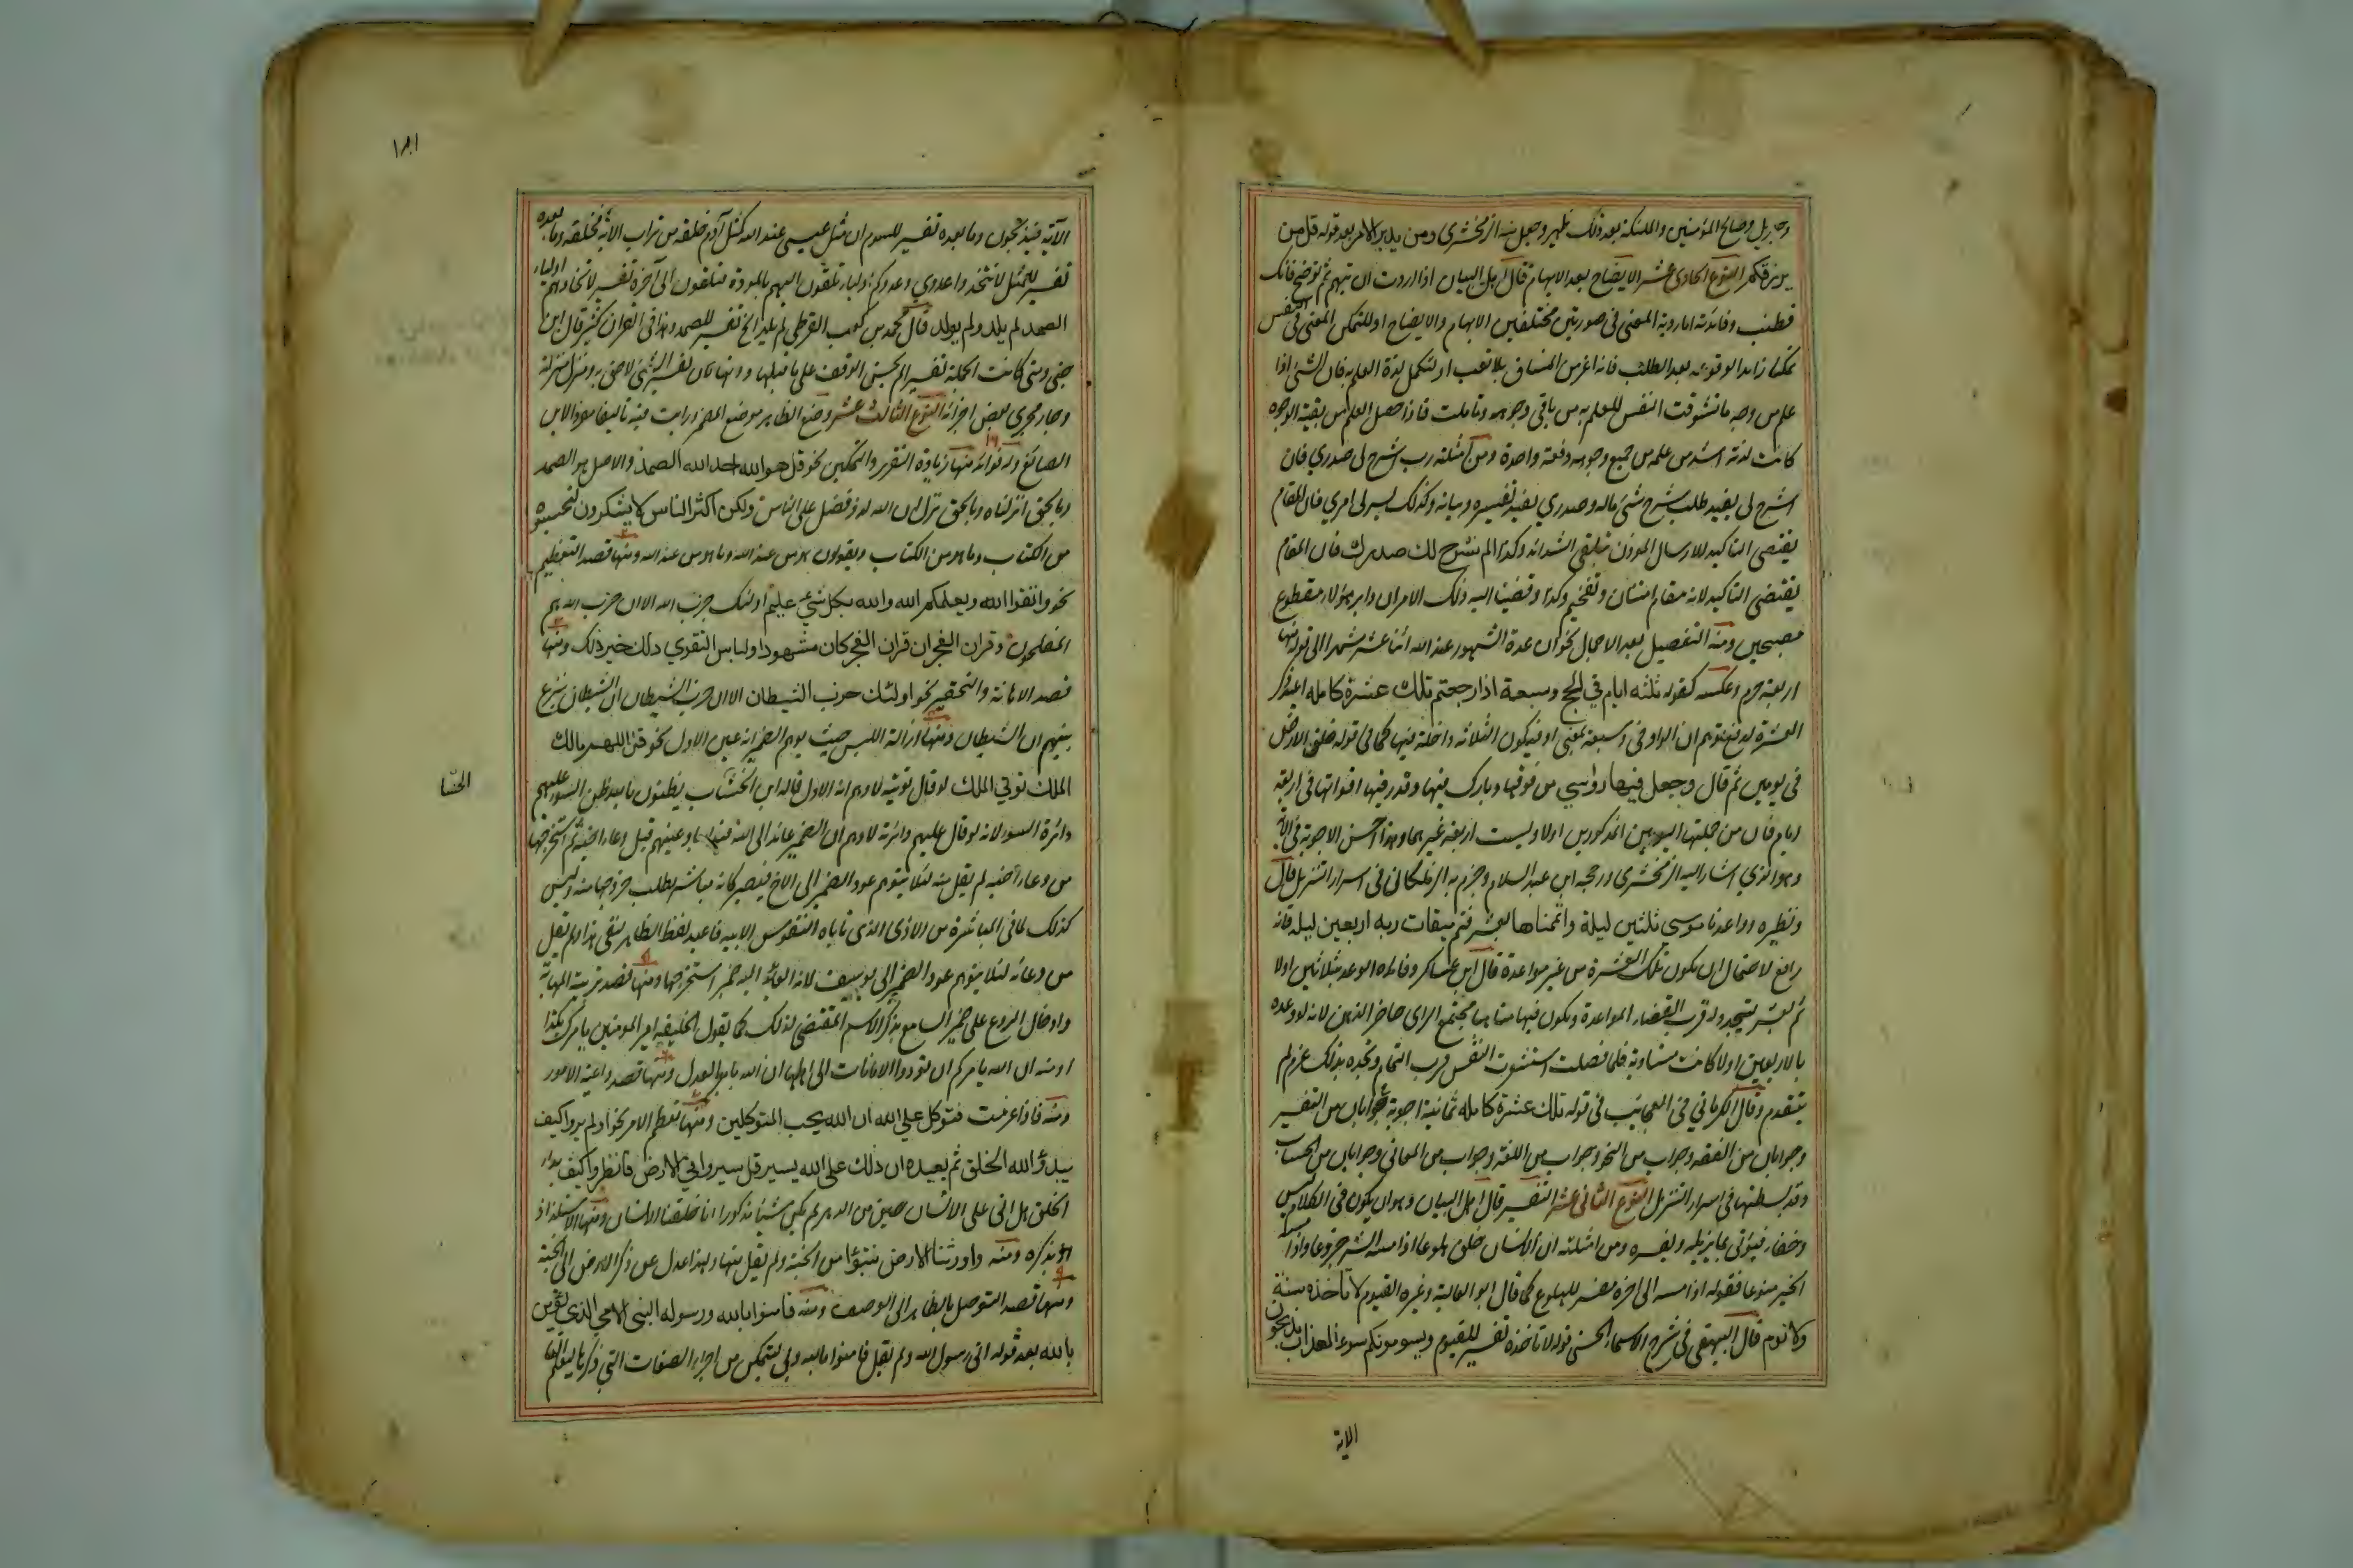 وجبريل وصالح المؤمنين والملئكة بعد ذلك ظهير وجعل منه الزمخشرى ومن يدبر الامر بعد قوله قل من
يرزقكم النوع الحادى عشر الايضاح بعد الابهام قال اهل البيان اذا اردت ان تبهم ثم توضح فانك
تطنب وفائدته اما روية المعنى فى صورتين مختلفتين الابهام والايضاح او لتمكن المعنى فى النفس
تمكنا زايدا لوقوعه بعد الطلب فانه اعز من المنساق بلا تعب او لتكمل لذة العلم به فان الشئ اذا
علم من وجه ما تشوقت النفس للعلم به من باقى وجوهه وتاملت فاذا حصل العلم من بقية الوجوه
كانت لذته اشد من علمه من جميع وجوهه دفعة واحدة ومن امثلته رب اشرح لى صدري فان
اشرح لى يفيد طلب شرح شئ ماله وصدري يفيد تفسيره وبيانه وكذلك يسر لى امري فان المقام
يقتضى التاكيد للارسال الموذن بتلقى الشدائد وكذا الم نشرح لك صدرك فان المقام
يقتضى التاكيد لانه مقام امتنان وتفخيم وكذا وقضينا اليه ذلك الامر ان دابر هؤلاء مقطوع
مصبحين ومنه التفصيل بعد الاجمال نحو ان عدة الشهور عند الله اثنا عشر شهرا الى قوله منها
اربعة حرم وعكسه كقوله ثلثه ايام في الحج وسبعة اذا رجعتم تلك عشرة كامله اعيد ذكر
العشرة لدفع توهم ان الواو فى وسبعة بمعنى او فيكون الثلاثه داخلة فيها كما فى قوله خلق الارض
فى يومين ثم قال وجعل فيها رواسي من فوقها وبارك فيها وقدر فيها اقواتها فى اربعة
ايام فان من جملتها اليومين المذكورين اولا وليست اربعة غيرهما وهذا احسن الاجوبة فى الآية
وهو الذي اشار اليه الزمخشرى ورجحه ابن عبد السلام وجزم به الزملكانى فى اسرار التنزيل قال
ونظيره وواعدنا موسي ثلثين ليلة واتممناها بعشر فتم ميقات ربه اربعين ليله فانه
رافع لاحتمال ان يكون تلك العشرة من غير مواعدة قال ابن عساكر وفائده الوعد بثلاثين اولا
ثم بعشر ليتجدد له قرب انقضاء المواعدة ويكون فيها متاهبا مجتمع الراى حاضر الذهن لانه لو وعده
بالاربعين اولا كانت متساوية فلما فصلت استشعرت النفس قرب التمام وتجدد بذلك عزم لم
يتقدم وقال الكرمانى فى العجائب فى قوله تلك عشرة كامله ثمانية اجوبة جوابان من التفسير
وجوابان من الفقه وجواب من النحو وجواب من اللغة وجواب من المعانى وجوابان من الحساب
وقد بسطتها فى اسرار التنزيل النوع الثانى عشر التفسير قال اهل البيان وهو ان يكون فى الكلام لبس
وخفاء فيؤتى بما يزيله ويفسره ومن امثلته ان الانسان خلق هلوعا اذا مسه الشر جزوعا واذا مسه
الخير منوعا فقوله اذا مسه الى اخره مفسر للهلوع كما قال ابو العالية وغيره القيوم لا تأخذه سنة
ولا نوم قال البيهقى فى شرح الاسماء الحسنى قوله لا تاخذه تفسير للقيوم ويسومونكم سوء العذاب يذبحون
الاية
١٨١
الآية فيذبحون وما بعده تفسير للسوم ان مثل عيسى عند الله كمثل آدم خلقه من تراب الآية فخلقه وما بعده
تفسير للمثل لا تتخذوا عدوي وعدوكم اولياء تلقون اليهم بالمودة فتلقون الى آخره تفسير لاتخاذهم اولياء
الصمد لم يلد ولم يولد قال محمد بن كعب القرظى لم يلد الخ تفسير للصمد وهذا فى القران كثير قال ابن
جنى ومتى كانت الجملة تفسيرا لم يحسن الوقف على ما قبلها دونها لان تفسير الشئ لاحق به ومنزل منزلة
وجار مجرى بعض اجزائه النوع الثالث عشر وضع الظاهر موضع المضمر ورايت فيه تاليفا مفردا لابن
الصائغ وله فوائد منها زيادة التقرير والتمكين نحو قل هو الله احد الله الصمد والاصل هو الصمد
وبالحق انزلناه وبالحق نزل ان الله لذو فضل على الناس ولكن اكثر الناس لا يشكرون لتحسبوه
من الكتاب وما هو من الكتاب ويقولون هو من عند الله وما هو من عند الله ومنها قصد التعظيم
نحو واتقوا الله ويعلمكم الله والله بكل شئ عليم اولئك حزب الله الا ان حزب الله هم
المفلحون وقران الفجر ان قران الفجر كان مشهودا ولباس التقوي ذلك خير ذلك ومنها
قصد الاهانة والتحقير نحو اولئك حزب الشيطان الا ان حزب الشيطان ان الشيطان ينزغ
بينهم ان الشيطان ومنها ازالة اللبس حيث يوهم الضمير انه عين الاول نحو قل اللهم مالك
الملك توتي الملك لو قال توتيه لاوهم انه الاول قاله ابن الخشاب يظنون بالله ظن السوء عليهم
الخشا
دائرة السوء لانه لو قال عليهم دائرته لاوهم ان الضمير عائد الى الله فبدا باوعيتهم قبل وعاء اخيه ثم استخرجها
من وعاء اخيه لم يقل منه لئلا يتوهم عود الضمير الى الاخ فيصير كانه مباشر بطلب خروجها منه وليس
كذلك لما فى المباشرة من الاذى الذى تاباه النفوس الابيه فاعيد لفظ الظاهر لنفى هذا ولم يقل
من وعائه لئلا يتوهم عود الضمير الى يوسف لانه العائد اليه ضمير استخرجها ومنها قصد تربية المهابة
وادخال الروع على ضمير السامع بذكر الاسم المقتضى لذلك كما يقول الخليفه امير المومنين يامرك بكذا
ومنه ان الله يامركم ان تؤدوا الامانات الى اهلها ان الله يامر بالعدل ومنها قصد داعية الامور
ومنه فاذا عزمت فتوكل علي الله ان الله يحب المتوكلين ومنها تعظيم الامر نحو اولم يروا كيف
يبدؤ الله الخلق ثم يعيده ان ذلك على الله يسير قل سيروا في الارض فانظروا كيف بدا
الخلق هل اتى على الانسان حين من الدهر لم يكن شيئا مذكورا انا خلقنا الانسان ومنها الاستلذاذ
بذكره ومنه واورثنا الارض نتبوأ من الجنة ولم يقل منها ولهذا عدل عن ذكر الارض الى الجنة
ومنها قصد التوصل بالظاهر الى الوصف ومنه فامنوا بالله ورسوله النبى الامي الذي يؤمن
بالله بعد قوله انى رسول الله ولم يقل فامنوا بالله وبى ليتمكن من اجراء الصفات التى ذكرها ليعلم